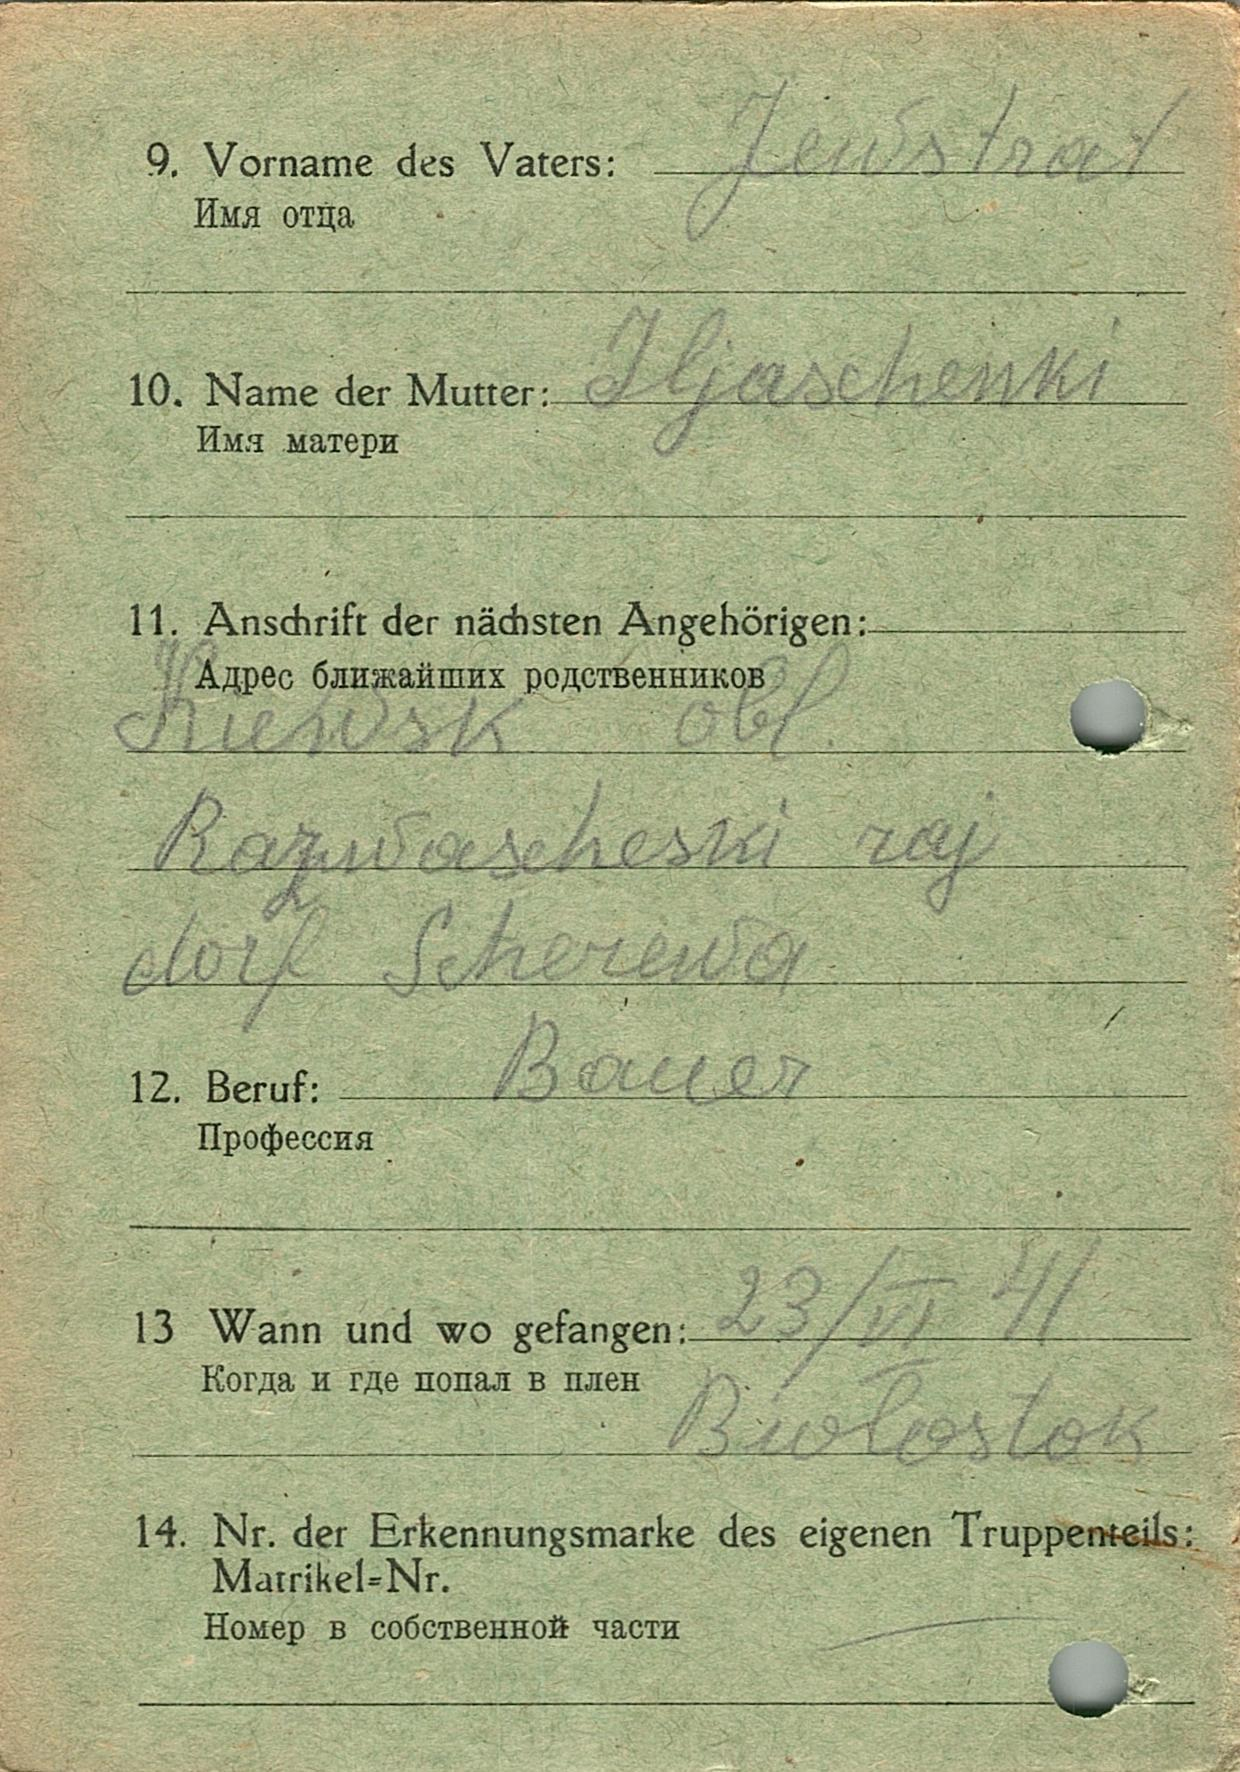 9. Vorname des Vaters: Jewstrat
Имя отца
10. Name der Mutter: Iljaschenki
Имя матери
11. Anschrift der nächsten Angehörigen:
Адрес ближайших родственников
Kiewsk obl.
Razwascheski raj
dorf Scherewa
12. Beruf: Bauer
Профессия
13 Wann und wo gefangen: 23/VI 41
Когда и где попал в плен
Biolostok
14. Nr. der Erkennungsmarke des eigenen Truppenteils:
Matrikel=Nr.
Номер в собственной части